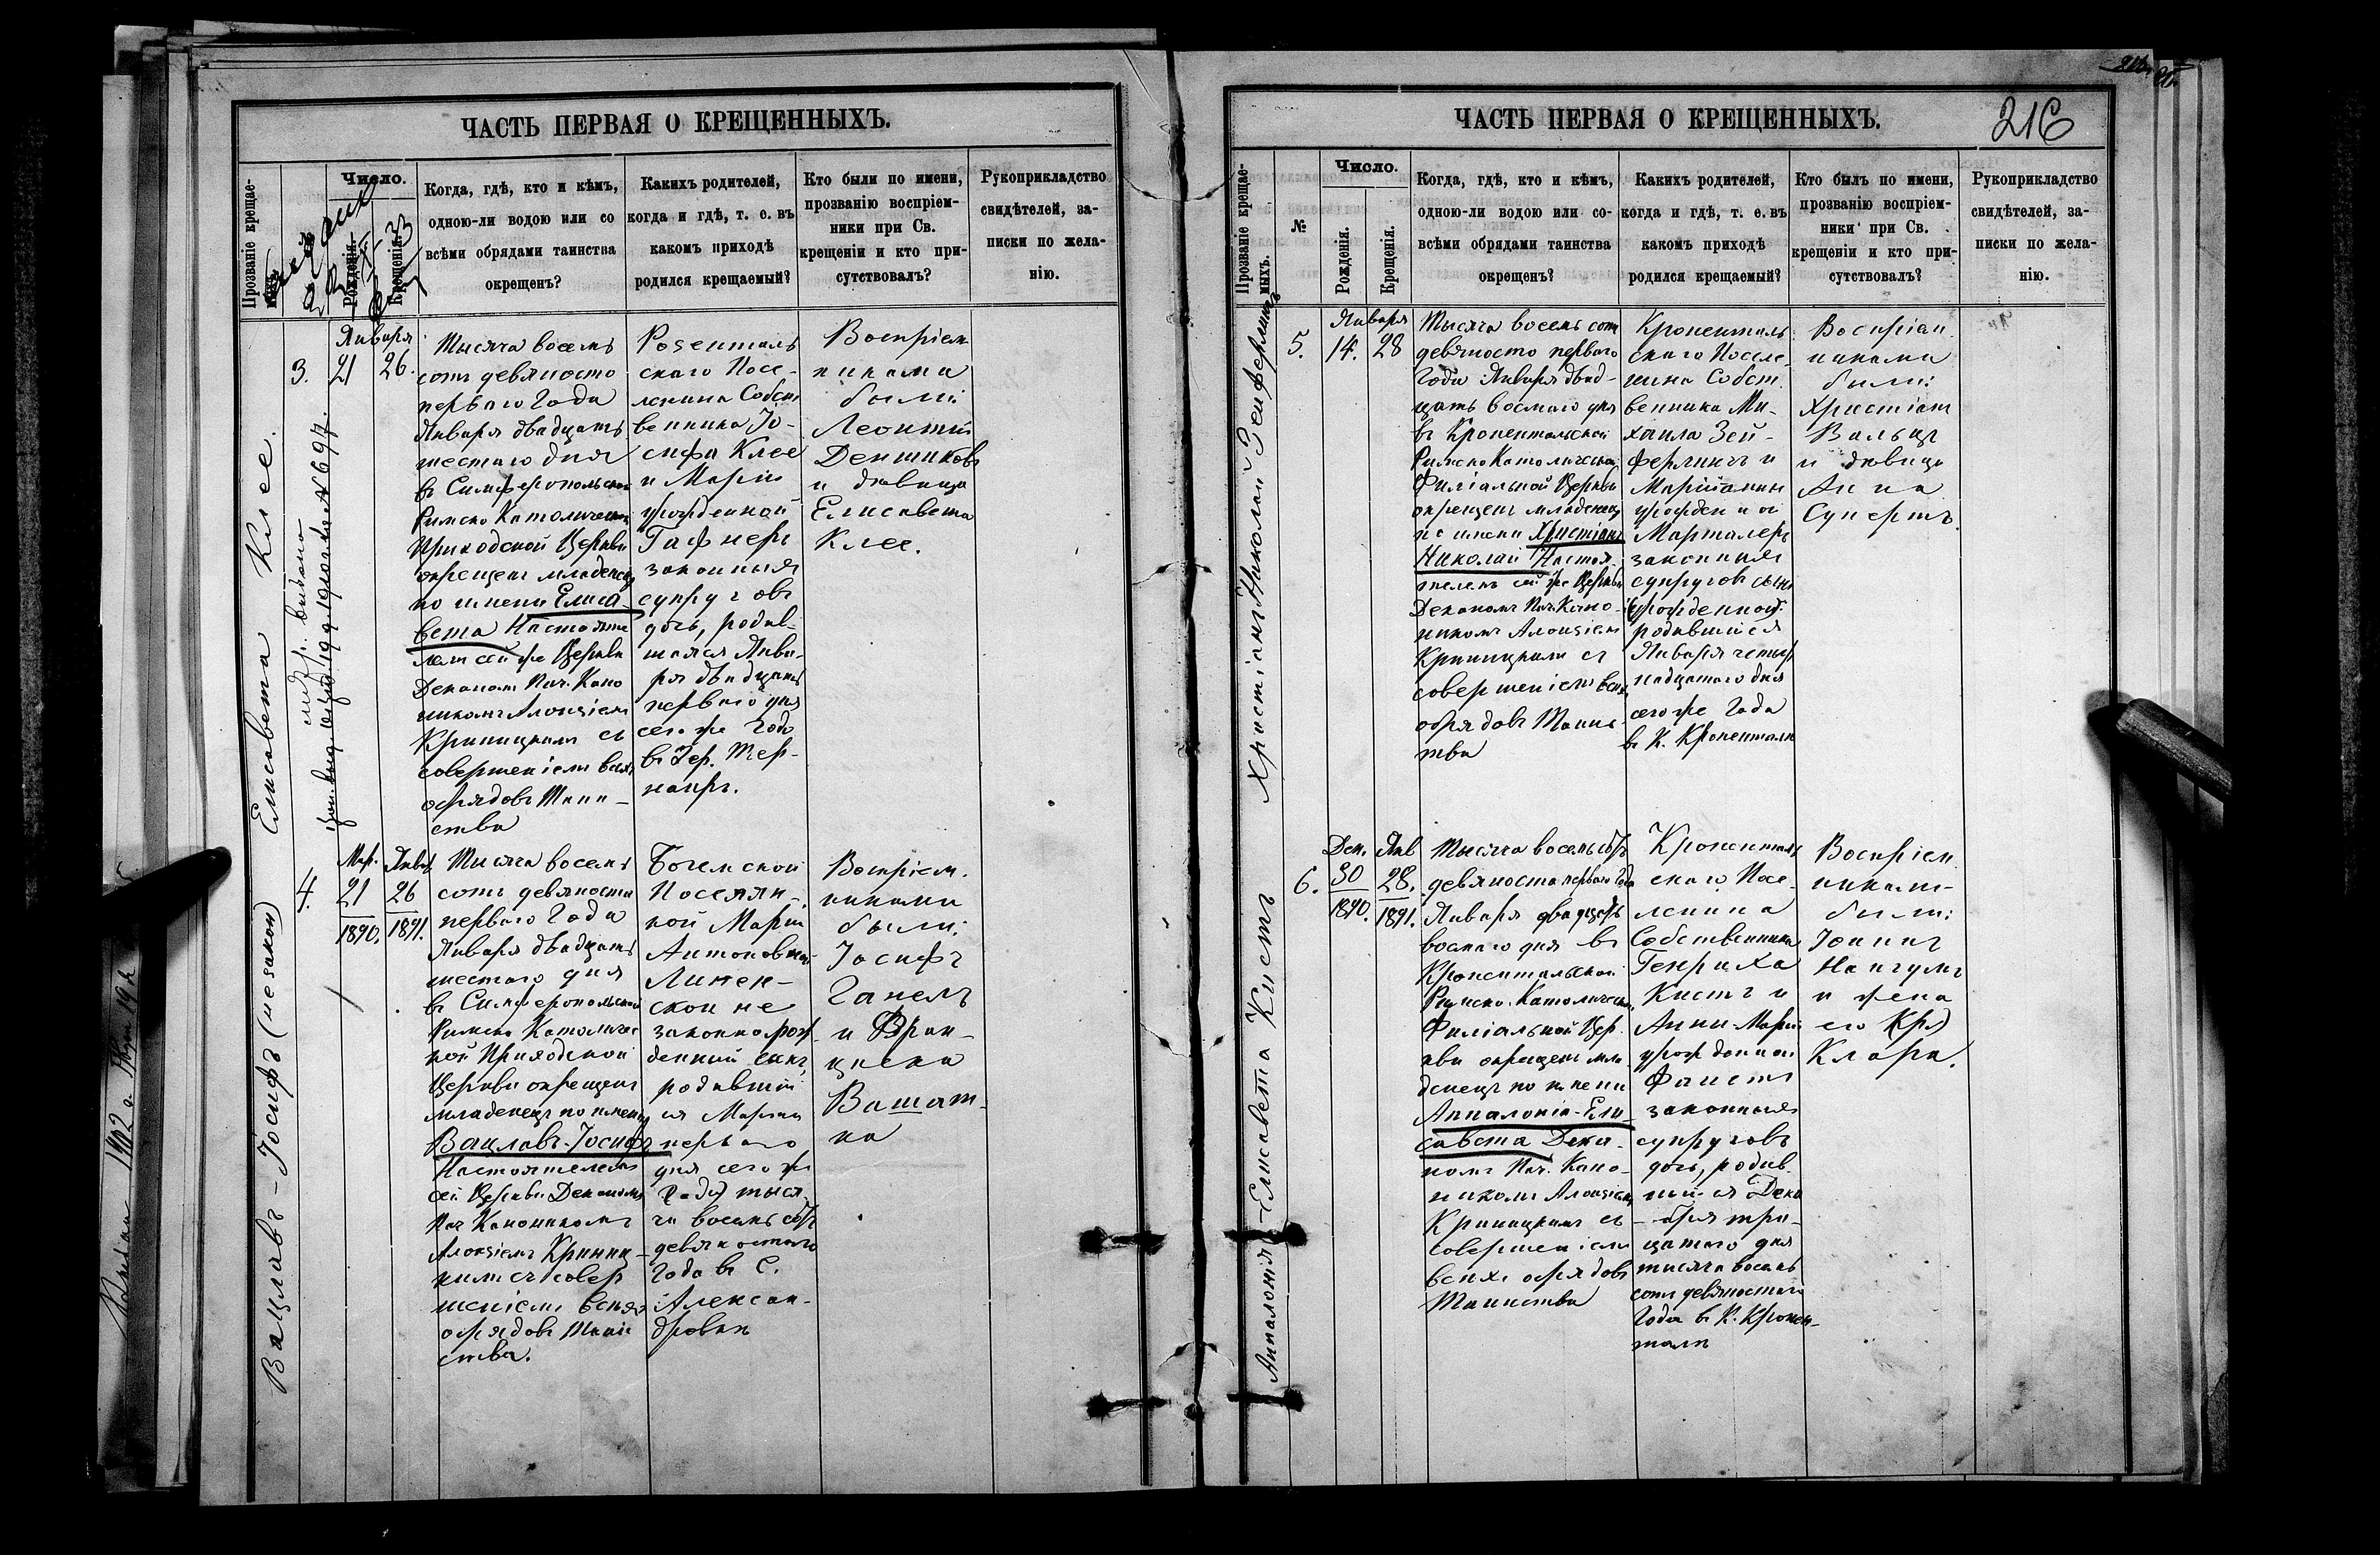 ЧАСТЬ ПЕРВАЯ О КРЕЩЕННЫХЪ.
Прозваніе крещае-
мыхъ.
Число.
Рожденія.
Крещенія.
Когда, гдѣ, кто и кѣмъ,
одною-ли водою или со
всѣми обрядами таинства
окрещенъ?
Какихъ родителей,
когда и гдѣ, т. е. въ
какомъ приходѣ
родился крещаемый?
Кто были по имени,
прозванію воспріем-
ники при Св.
крещеніи и кто при-
сутствовалъ?
Рукоприкладство
свидѣтелей, за-
писки по жела-
нію.
Елисавета Клее.
выдано
№ 697.
3.
Января
21
26.
Тысяча восемь
сотъ девяносто
перваго Года
Января двадцать
шестаго дня
въ Симферопольской
Римско Католической
Приходской Церкви
окрещенъ младенецъ
по имени Елиса-
вета Настояте
лемъ сей же Церкви
Деканомъ Поч. Кано
никомъ Алоизіемъ
Криницкимъ съ
совершеніемъ всѣхъ
обрядовъ Таин-
ства
Розенталь
скаго Посе-
ленина Собст
венника Іо-
сифа Клее
и Маріи
урожденной
Гафнеръ
законныхъ
супруговъ
дочь, родив-
шаяся Янва-
ря двадцать
перваго дня
сего же Года
въ
Воспріем
никами
были:
Леонтій
Денщиковъ
и дѣвица
Елисавета
Клее.
Вацлавъ-Іосифъ (незакон)
4.
Мар.
21
1890.
Январ
26
1891.
Тысяча восемь
сотъ девяносто
перваго Года
Января двадцать
шестаго дня
въ Симферопольской
Римско Католичес
кой Приходской
Церкви окрещенъ
младенецъ по имени
Вацлавъ-Іосифъ
Настоятелемъ
сей Церкви Деканомъ
Поч Каноникомъ
Алоизіемъ Криниц-
кимъ съ совер
шеніемъ всѣхъ
обрядовъ Таин
ства.
Богемской
Поселян-
кой Маріи
Антоновной
Липен-
ской не
законнорож
денный сынъ,
родивший
ся Марта
перваго
дня сего же
Года тыся
ча восемь сотъ
девяностаго
Года въ С.
Алексан-
дровкѣ
Воспріем.
никами
были:
Іосифъ
Гапелъ
и Фран-
циска
Вашат-
ка
ЧАСТЬ ПЕРВАЯ О КРЕЩЕННЫХЪ.
216
Прозваніе крещае-
мыхъ.
№
Число.
Рожденія.
Крещенія.
Когда, гдѣ, кто и кѣмъ,
одною-ли водою или со-
всѣми обрядами таинства
окрещенъ?
Какихъ родителей,
когда и гдѣ, т. е. въ
какомъ приходѣ
родился крещаемый?
Кто былъ по имени,
прозванію воспріем-
ники при Св.
крещеніи и кто при-
сутствовалъ?
Рукоприкладство
свидѣтелей, за-
писки по жела-
нію.
Христіанъ Николай Зейферлингъ
5.
Января
14.
28
Тысяча восемь сотъ
девяносто перваго
Года Января двад-
цать восмаго дня
въ Кронентальской
Римско Католической
Филіальной Церкви
окрещенъ младенецъ
по имени Христіанъ
Николай Настоя-
телемъ сей же Церкви
Деканомъ Поч. Кано-
никомъ Алоизіемъ
Криницкимъ съ
совершеніемъ всѣхъ
обрядовъ Таинс
тва
Кроненталь
скаго Поселе
нина Собст.
венника Ми-
хаила Зей-
ферлингъ и
Маріанны
урожденной
Марталеръ
законныхъ
супруговъ сынъ
родившійся
Января четыр
надцатаго дня
сего же Года
въ К. Кроненталь
Воспріем
никами
были:
Христіанъ
Вальцъ
и дѣвица
Анна
Супертъ.
Аппалонія-Елисавета Кистъ
6.
Дек.
30
1890.
Янв
28.
1891.
Тысяча восемь сотъ
девяноста перваго Года
Января двадцать
восмаго дня въ
Кроненталь­ской
Римско-Католической
Филіальной Цер-
кви окрещенъ мла
денецъ по имени
Аппалонія-Ели-
савета Дека-
номъ Поч. Кано-
никомъ Алоизіемъ
Криницкимъ съ
совершеніемъ
всѣхъ обрядовъ
Таинства
Кроненталь
скаго Посе-
ленина
Собственника
Генриха
Кистъ и
Анны-Маріи
урожденной
Фаистъ
законныхъ
супруговъ
дочь, родив-
шийся Дека
бря трид-
цатаго дня
тысяча восемь
сотъ девяностаго
Года въ К. Кронен-
таль
Воспріем
никами
были:
Іоаннъ
Нангумъ
и жена
его
Клара.